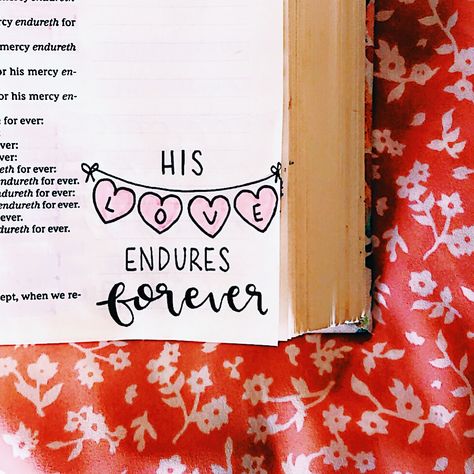 rcy endureth for
mercy endureth
or his mercy en-
or his mercy en-
for ever:
ver:
ver:
eth for ever:
ndureth for ever.
ndureth for ever:
endureth for ever.
ever.
dureth for ever.
ept, when we re-
HIS
LOVE
ENDURES
forever